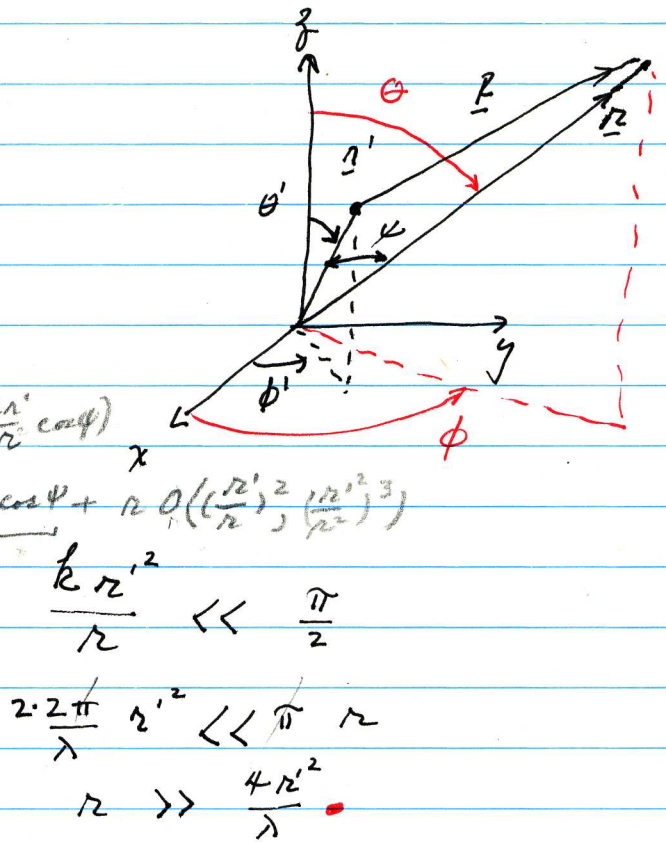 z
θ R
r
r'
θ' ψ
y
ϕ'
r'/r cosψ)
ϕ
x
cosψ + r O((r'/r)², (r'²/r²)³)
k r'²/r << π/2
2·2π/λ r'² << π r
r >> 4r'²/λ